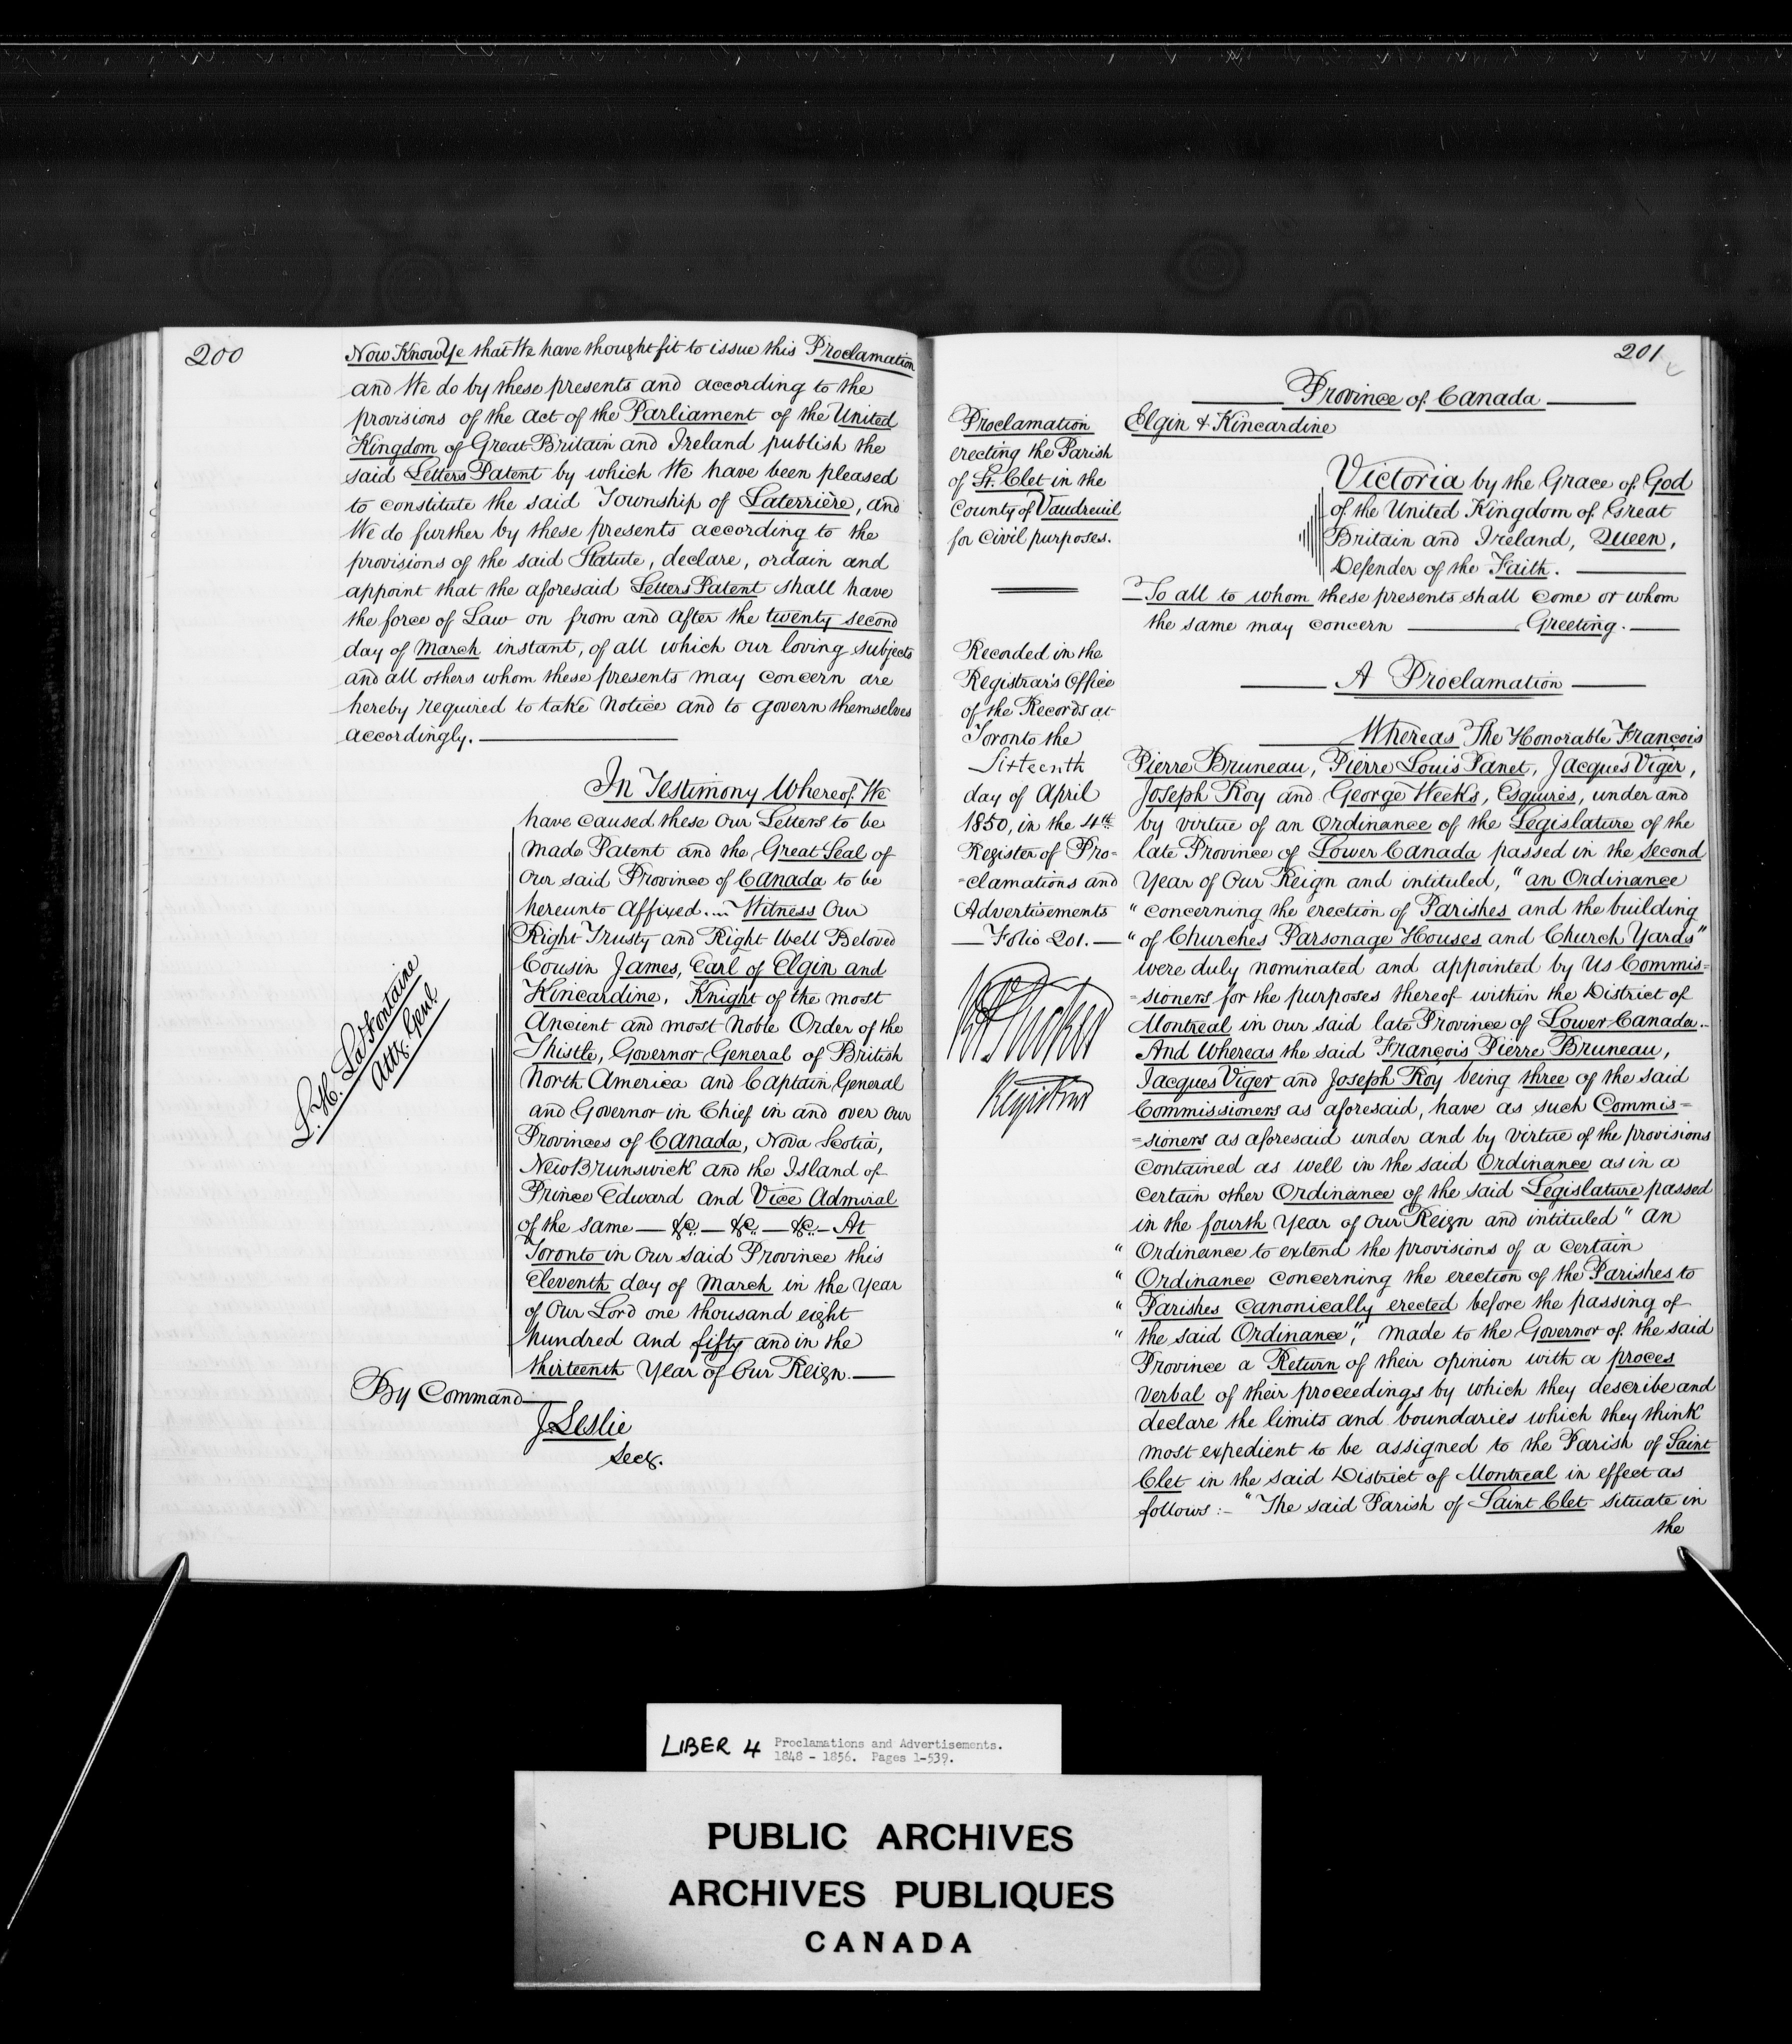 200
Now Know Ye that We have thought fit to issue this Proclamation
and We do by these presents and according to the
provisions of the act of the Parliament of the United
Kingdom of Great Britain and Ireland publish the
said Letters Patent by which We have been pleased
to constitute the said Township of Laterrière, and
We do further by these presents according to the
provisions of the said Statute, declare, ordain and
appoint that the aforesaid Letters Patent shall have
the force of Law on from and after the twenty second
day of March instant, of all which our loving subjects
and all others whom these presents may concern are
hereby required to take notice and to govern themselves
accordingly.
In Testimony Whereof. We
have caused these Our Letters to be
made Patent and the Great Seal of
Our said Province of Canada to be
hereunto affixed.... Witness Our
Right Trusty and Right Well Beloved
Cousin James, Earl of Elgin and
Kincardine, Knight of the most
Ancient and most Noble Order of the
Thistle, Governor General of British
North America and Captain General
and Governor in Chief in and over our
Provinces of Canada, Nova Scotia,
New Brunswick and the Island of
Prince Edward and Vice Admiral
of the same — &c. — &c. — &c. — At
Toronto in Our said Province this
Eleventh day of March in the Year
of Our Lord one thousand eight
hundred and fifty and in the
thirteenth Year of Our Reign.
L. H. LaFontaine
Atty. Genl
By Command
J. Leslie
Secy.
201
Province of Canada
Proclamation
erecting the Parish
of St. Clet in the
County of Vaudreuil
for Civil purposes.
Recorded in the
Registrar's Office
of the Records at
Toronto the
Sixteenth
day of April
1850, in the 4th
Register of Pro=
=clamations and
Advertisements
— Folio 201. —
Registrar
Elgin & Kincardine
Victoria by the Grace of God
of the United Kingdom of Great
Britain and Ireland, Queen,
Defender of the Faith.
To all to whom these presents shall come or whom
the same may concern — Greeting.
A Proclamation
Whereas The Honorable François
Pierre Bruneau, Pierre Louis Panet, Jacques Viger,
Joseph Roy and George Weeks, Esquires, under and
by virtue of an Ordinance of the Legislature of the
late Province of Lower Canada passed in the second
Year of Our Reign and intituled, "an Ordinance
"concerning the erection of Parishes and the building
"of Churches Parsonage Houses and Church Yards"
were duly nominated and appointed by Us Commis=
=sioners for the purposes thereof within the District of
Montreal in our said late Province of Lower Canada.
And Whereas the said François Pierre Bruneau,
Jacques Viger and Joseph Roy being three of the said
Commissioners as aforesaid, have as such Commis=
=sioners as aforesaid under and by virtue of the provisions
contained as well in the said Ordinance as in a
certain other Ordinance of the said Legislature passed
in the fourth Year of Our Reign and intituled "an
"Ordinance to extend the provisions of a certain
"Ordinance concerning the erection of the Parishes to
"Parishes canonically erected before the passing of
"the said Ordinance", made to the Governor of the said
Province a Return of their opinion with a proces
verbal of their proceedings by which they describe and
declare the limits and boundaries which they think
most expedient to be assigned to the Parish of Saint
Clet in the said District of Montreal in effect as
follows:- "The said Parish of Saint Clet situate in
the
LIBER 4
Proclamations and Advertisements.
1848 - 1856. Pages 1-539.
PUBLIC ARCHIVES
ARCHIVES PUBLIQUES
CANADA